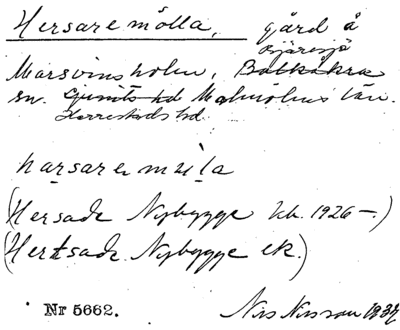 Hersaremölla, gård å
Bjäresjö
Marsvinsholm, Balkåkra
sn. Ljunits hd Malmöhus län.
Herrestads hd.
(Hersade Nybygge hb. 1926–.)
(Hertsade Nybygge ek.)
Nr 5662. Nils Nilsson